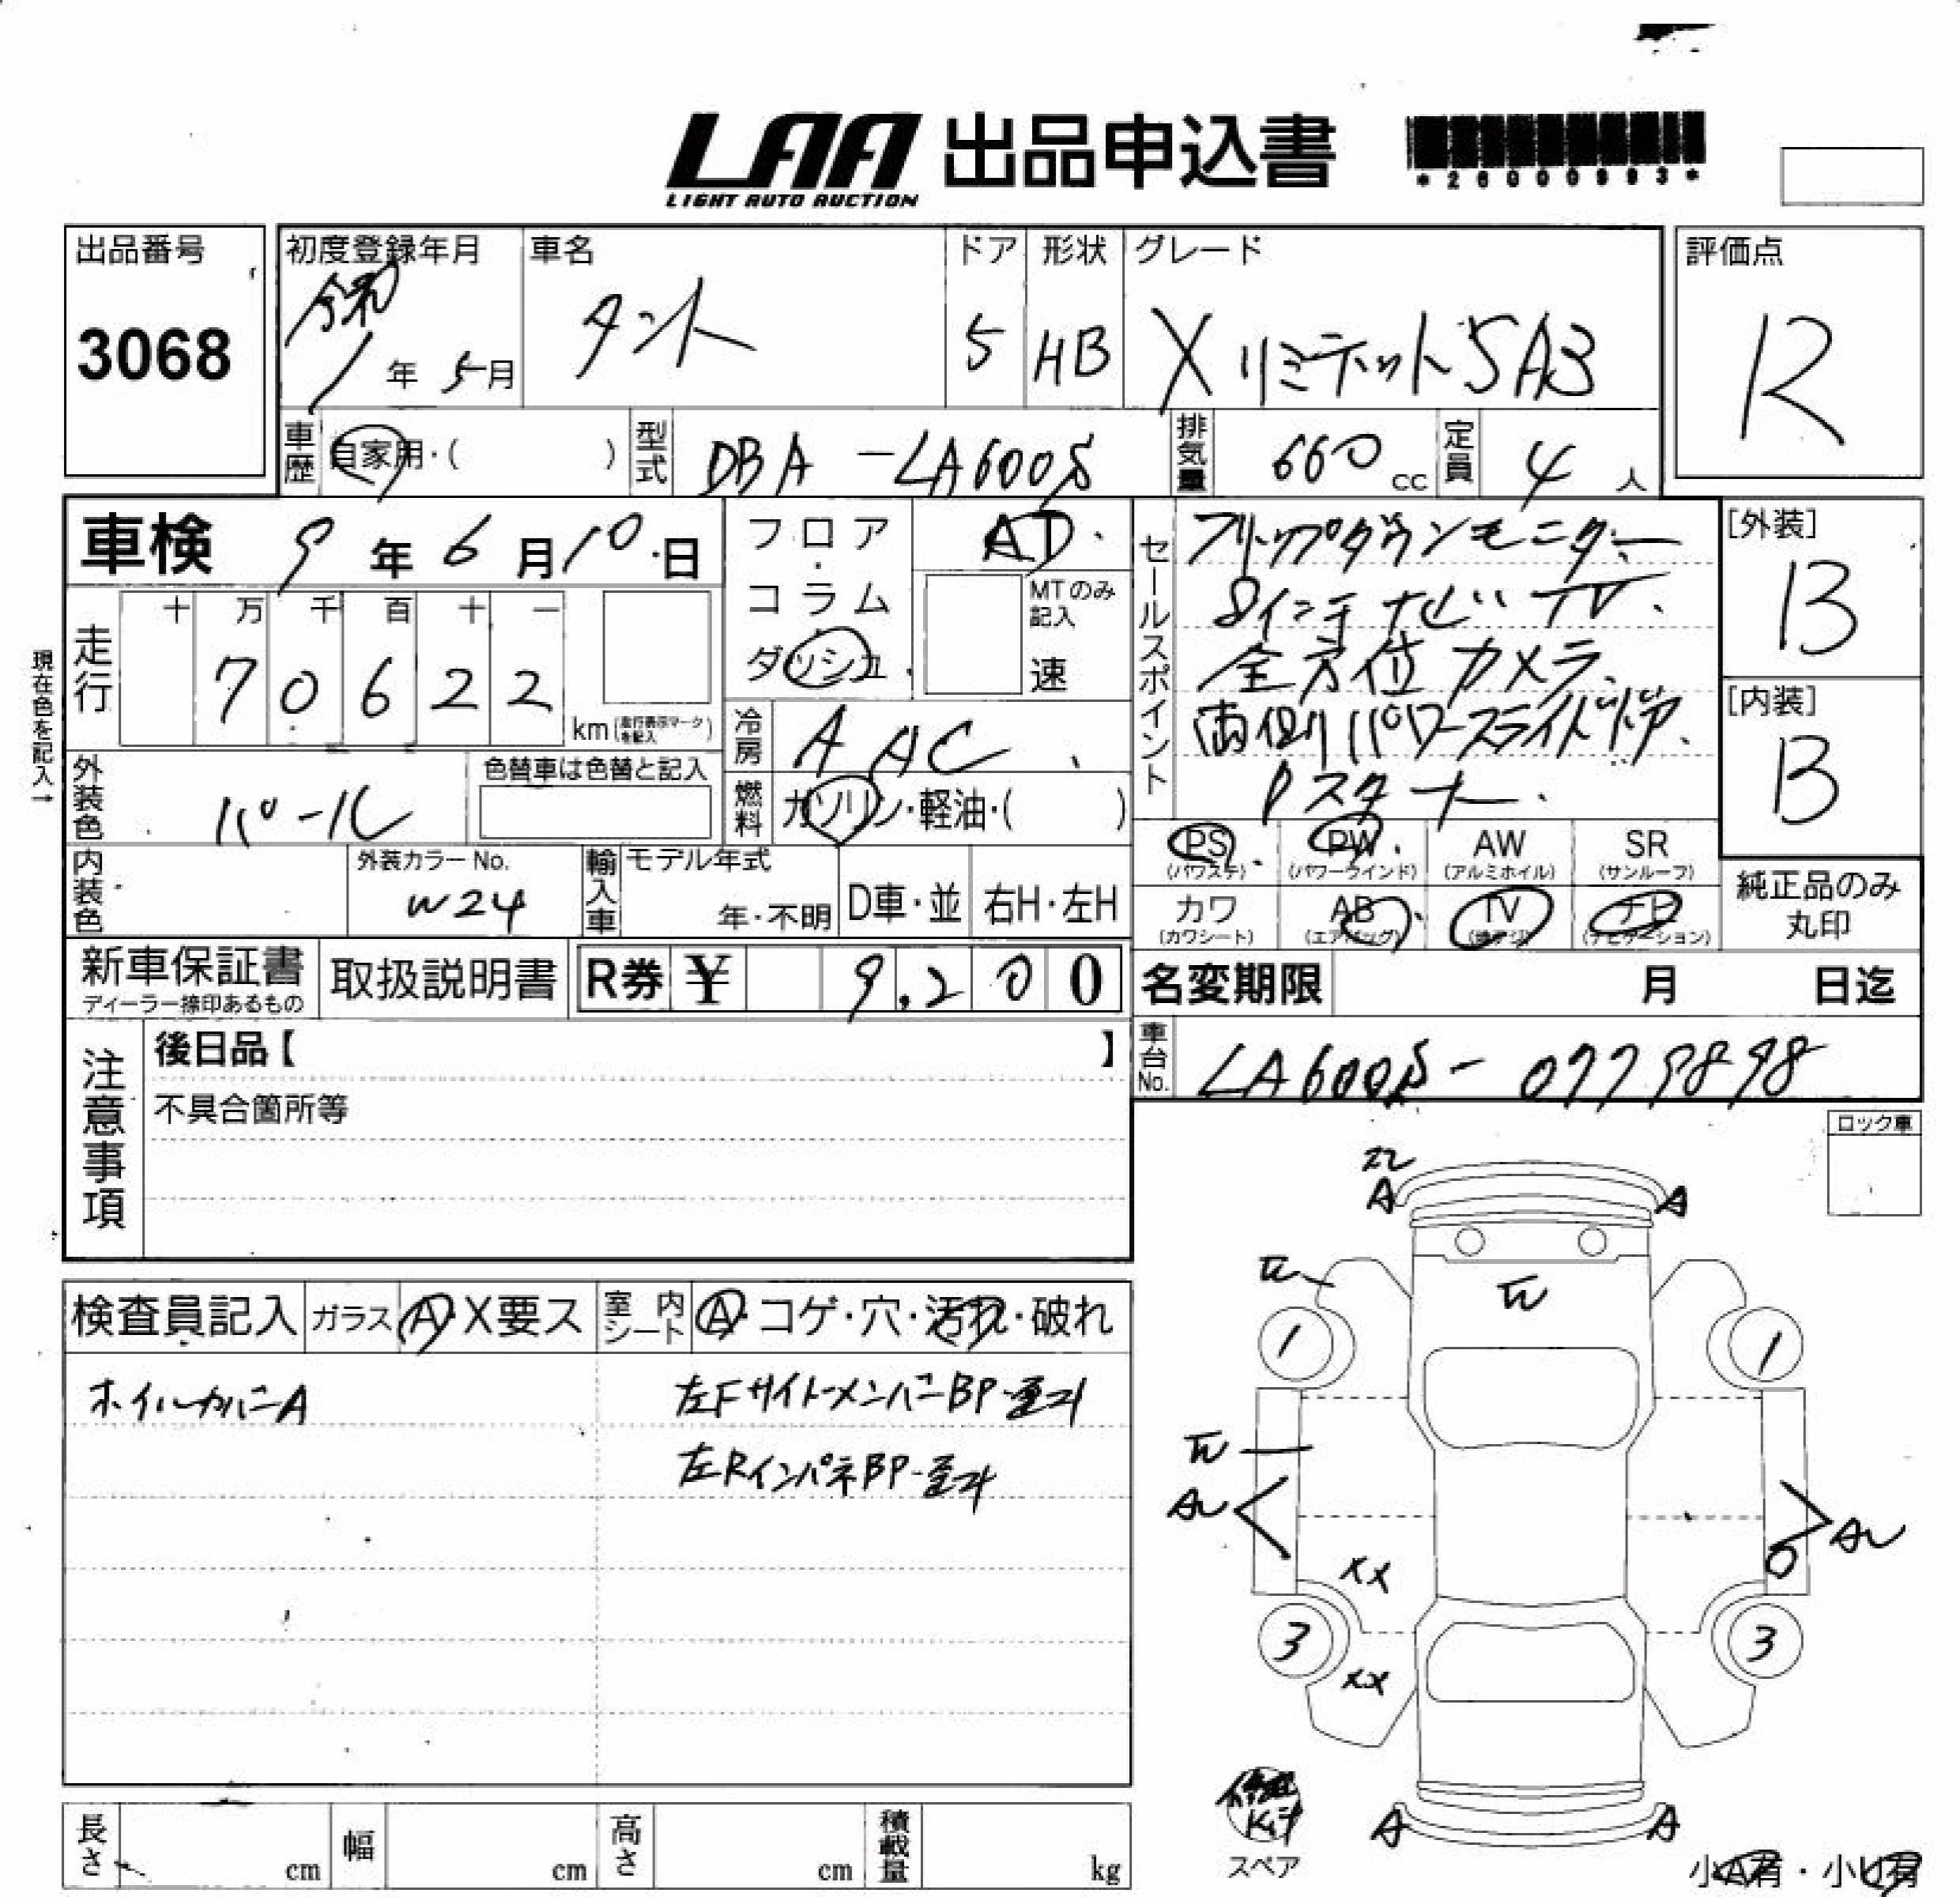 LAA 出品申込書
LIGHT AUTO AUCTION
*26000993*
出品番号
3068
初度登録年月
令和
1年 5月
車名
タント
ドア
5
形状
HB
グレード
XリミテットSA3
評価点
R
車歴
自家用・( )
型式
DBA-LA600S
排気量
660cc
定員
4人
車検 9年6月10日
フロア・コラム・ダッシュ
AT
MTのみ記入
速
セールスポイント
フリップダウンモニター
8インチナビTV.
全方位カメラ.
両側パワースライドドア.
Pスターナー.
[外装]
B
[内装]
B
現在色を記入→
走行
十 万 千 百 十 一
7 0 6 2 2
km(走行表示マークを記入)
冷房
AAC
外装色
パール
色替車は色替と記入
燃料
ガソリン・軽油・( )
内装色
外装カラーNo.
W24
輸入車
モデル年式
年・不明
D車・並
右H・左H
PS (パワステ)
PW (パワーウインド)
AW (アルミホイル)
SR (サンルーフ)
カワ (カワシート)
AB (エアバッグ)
TV
ナビ (ナビゲーション)
純正品のみ丸印
新車保証書
ディーラー捺印あるもの
取扱説明書
R券 ¥ 9,200
名変期限 月 日迄
注意事項
後日品【 】
不具合箇所等
車台No.
LA600S-0779898
ロック車
検査員記入
ガラス A・X要ス
室内シート A・コゲ・穴・汚れ・破れ
ホイルカバーA
左FサイドメンバーBP・歪み
左RインパネBP-歪み
A A
1 1
XX
3 3
XX
A A
スペア
小A有・小U有
長さ cm
幅 cm
高さ cm
積載量 kg